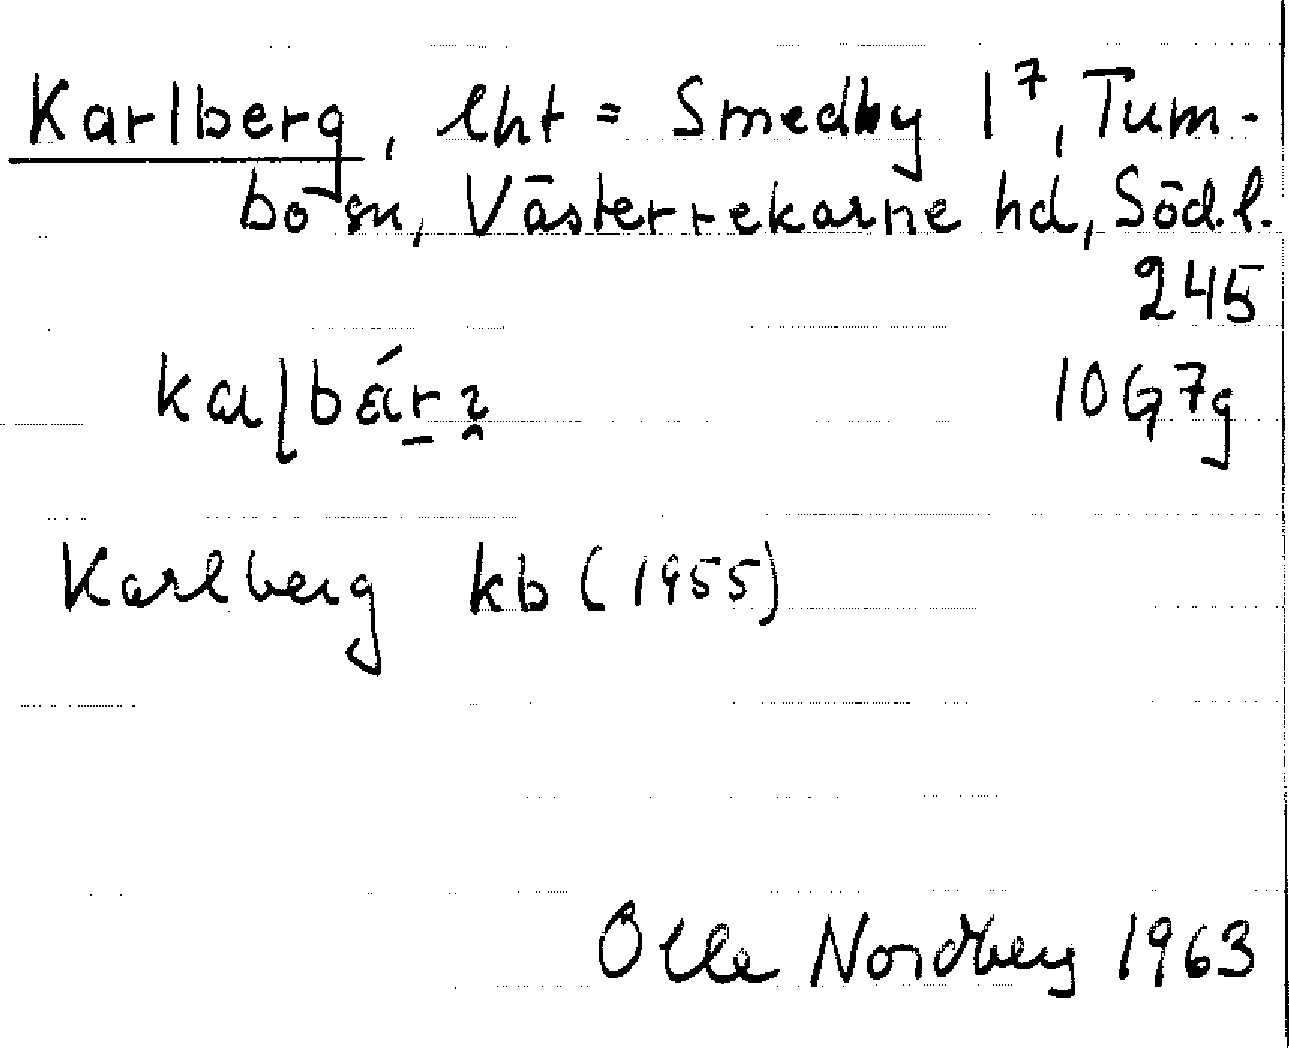 Karlberg, lht = Smedby 1⁷, Tum-
bo sn, Västerrekarne hd, Södl.
245
10G7g
Karlberg kb (1955)
Olle Nordberg 1963